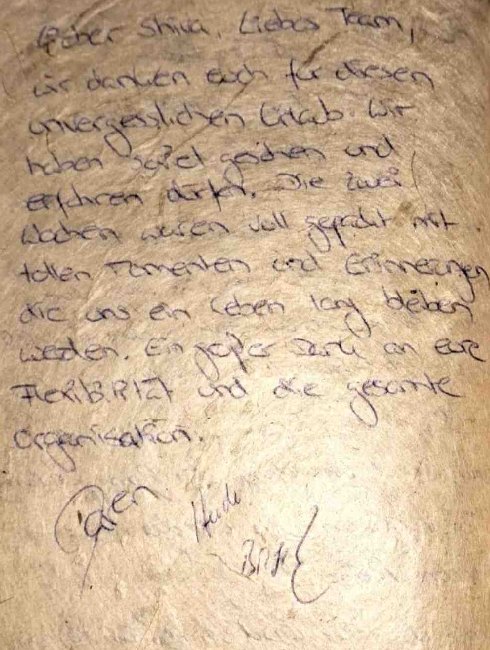 Lieber Shiva, Liebes Team,
wir danken euch für diesen
unvergesslichen Urlaub. Wir
haben soviel gesehen und
erfahren dürfen. Die zwei
Wochen waren voll gepackt mit
tollen Momenten und Erinnerungen
die uns ein Leben lang bleiben
werden. Ein großer Dank an eure
Flexibilität und die gesamte
Organisation.
Heidi